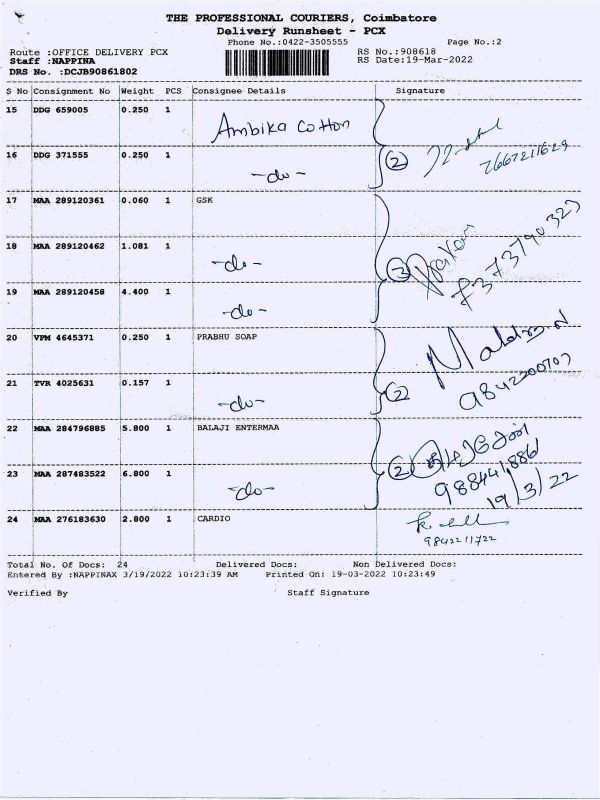 THE PROFESSIONAL COURIERS, Coimbatore
Delivery Runsheet - PCX
Phone No.:0422-3505555 Page No.:2
Route :OFFICE DELIVERY PCX RS No.:908618
Staff :NAPPINA RS Date:19-Mar-2022
DRS No. :DCJB90861802
S No Consignment No Weight PCS Consignee Details Signature
15 DDG 659005 0.250 1 Ambika Cotton
16 DDG 371555 0.250 1 -do- 2
17 MAA 289120361 0.060 1 GSK
18 MAA 289120462 1.081 1 -do- 3
19 MAA 289120458 4.400 1 -do-
20 VPM 4645371 0.250 1 PRABHU SOAP
21 TVR 4025631 0.157 1 -do- 2
22 MAA 284796885 5.800 1 BALAJI ENTERMAA
23 MAA 287483522 6.800 1 -do- 2
19/3/22
24 MAA 276183630 2.800 1 CARDIO
9842211722
Total No. Of Docs: 24 Delivered Docs: Non Delivered Docs:
Entered By :NAPPINAX 3/19/2022 10:23:39 AM Printed On: 19-03-2022 10:23:49
Verified By Staff Signature